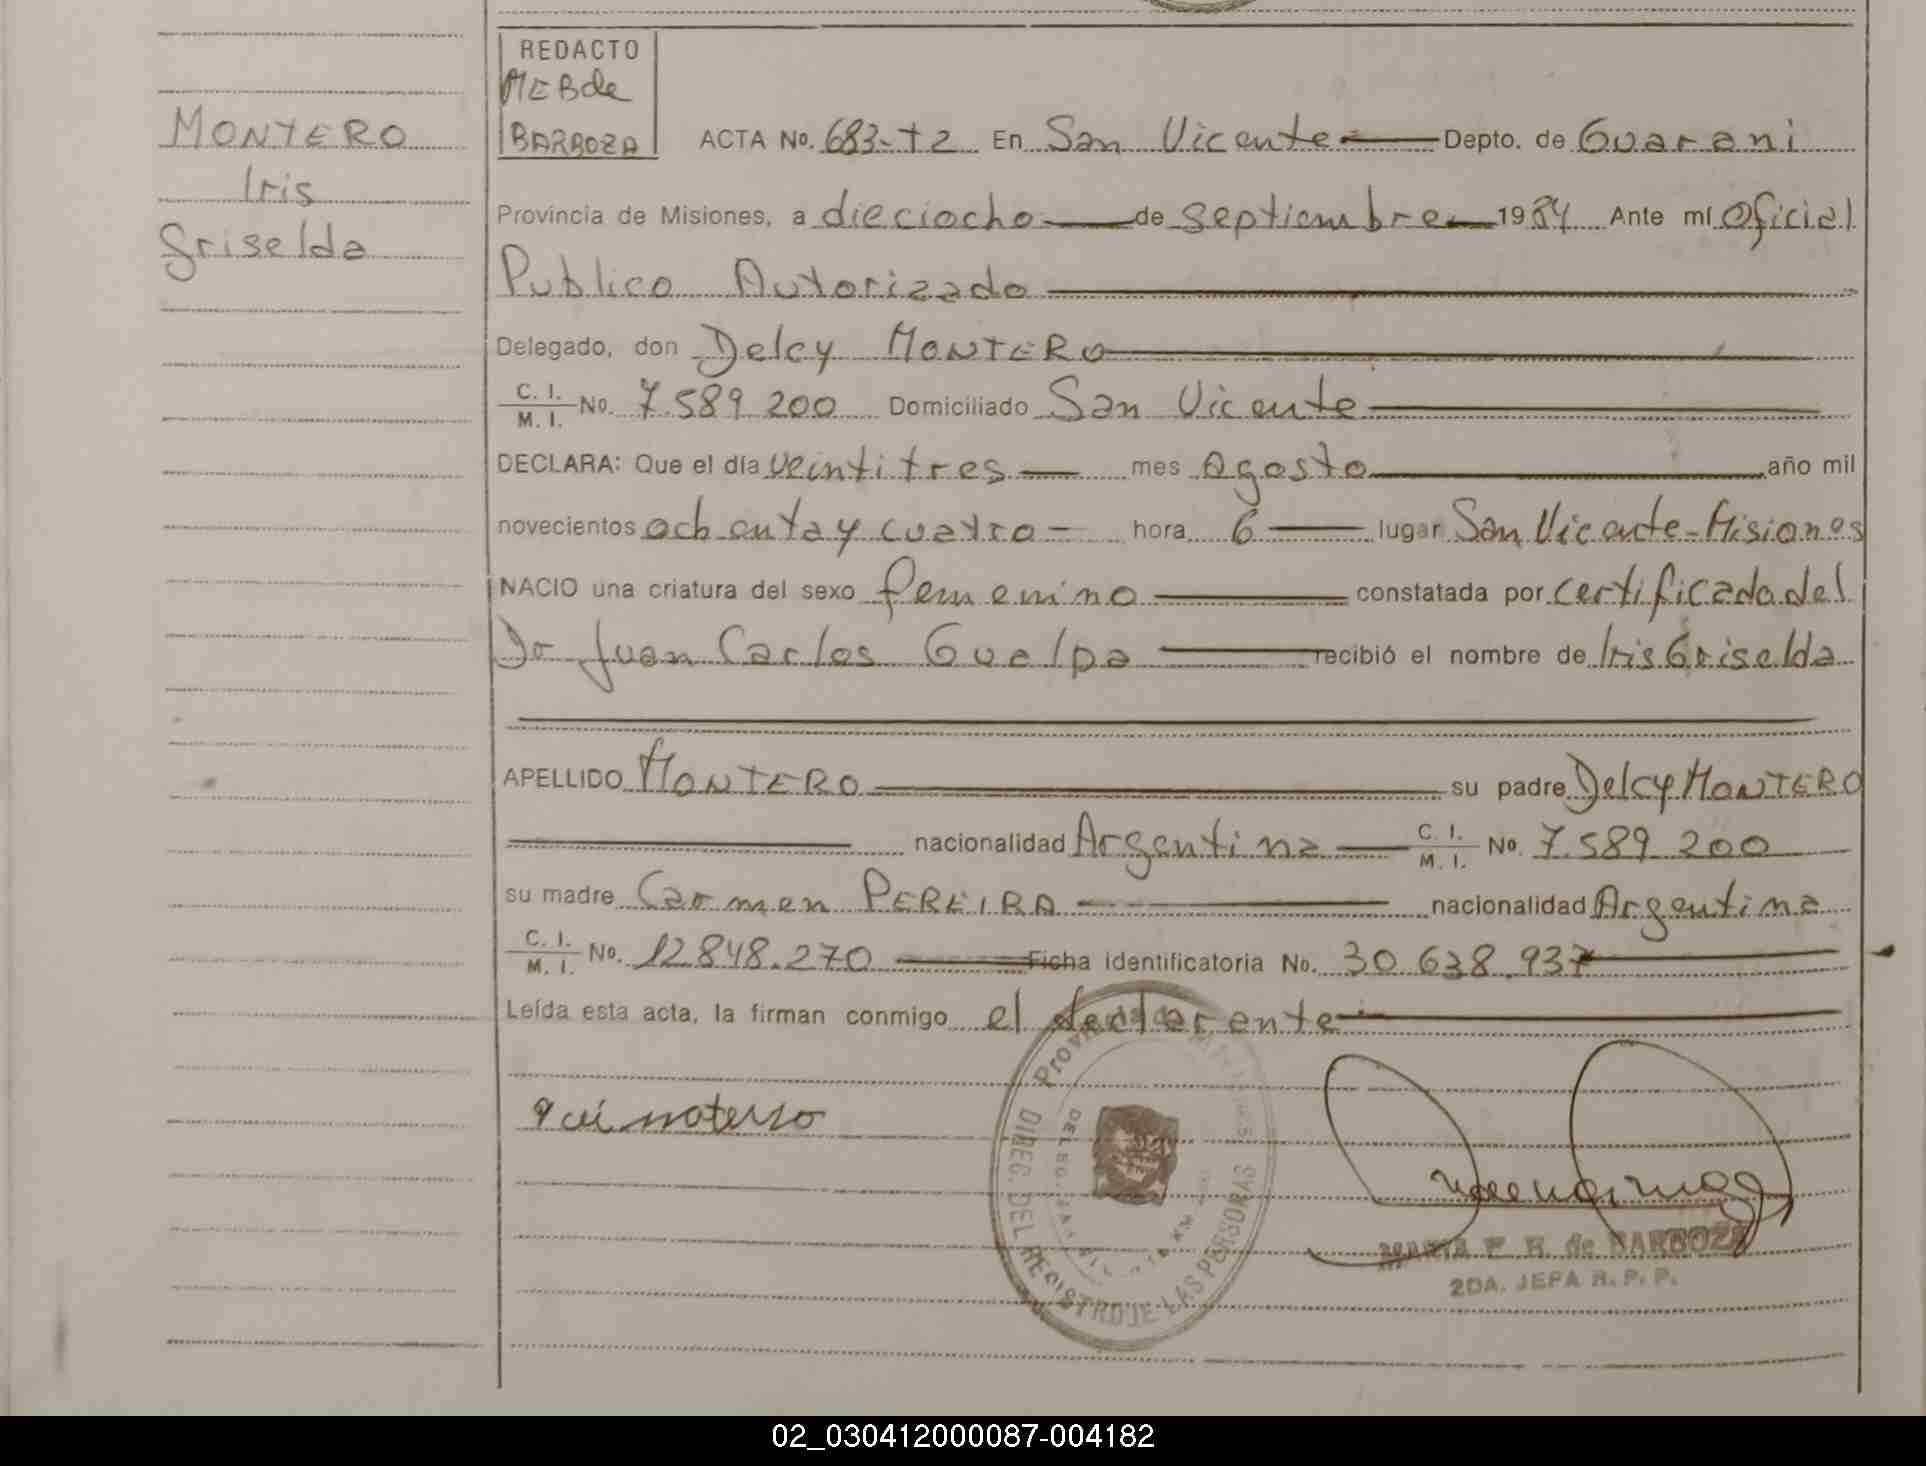 MONTERO
Iris
Griselda
REDACTO
MEBde
BARBOZA
ACTA No. 683-T2 En San Vicente Depto. de Guarani
Provincia de Misiones, a dieciocho de septiembre 1984 Ante mí Oficial
Publico Autorizado
Delegado, don Delcy MONTERO
C. I.
M. I. No. 7.589 200 Domiciliado San Vicente
DECLARA: Que el día veintitres mes Agosto año mil
novecientos ochenta y cuatro hora 6 lugar San Vicente-Misiones
NACIO una criatura del sexo femenino constatada por certificado del
Dr Juan Carlos Guelpa recibió el nombre de Iris Griselda
APELLIDO MONTERO su padre Delcy MONTERO
nacionalidad Argentina C. I.
M. I. No. 7.589 200
su madre Carmen PEREIRA nacionalidad Argentina
C. I.
M. I. No. 12848.270 Ficha identificatoria No. 30 638.937
Leída esta acta, la firman conmigo el declarente
DIREC. DEL REGISTRO DE LAS PERSONAS
MARIA E B. de BARBOZA
2DA. JEFA R. P. P.
02_030412000087-004182